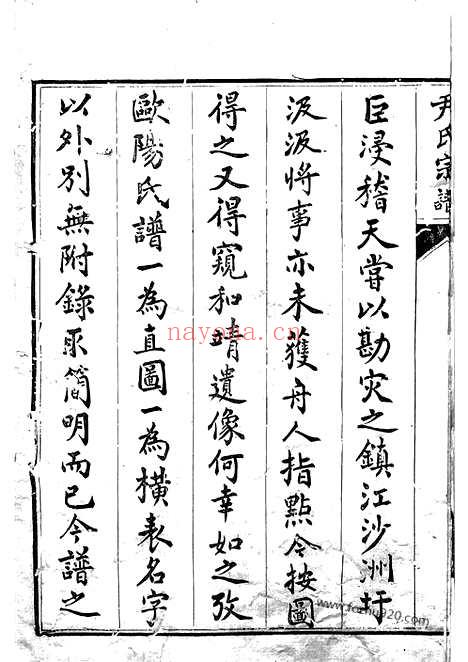 尹氏宗譜
巨浸稽天嘗以勘灾之鎮江沙洲圩
汲汲將事亦未獲舟人指點令按圖
得之又得窺和靖遺像何幸如之攷
歐陽氏譜一為直圖一為橫表名字
以外別無附錄取簡明而已今譜之
nayona.cn